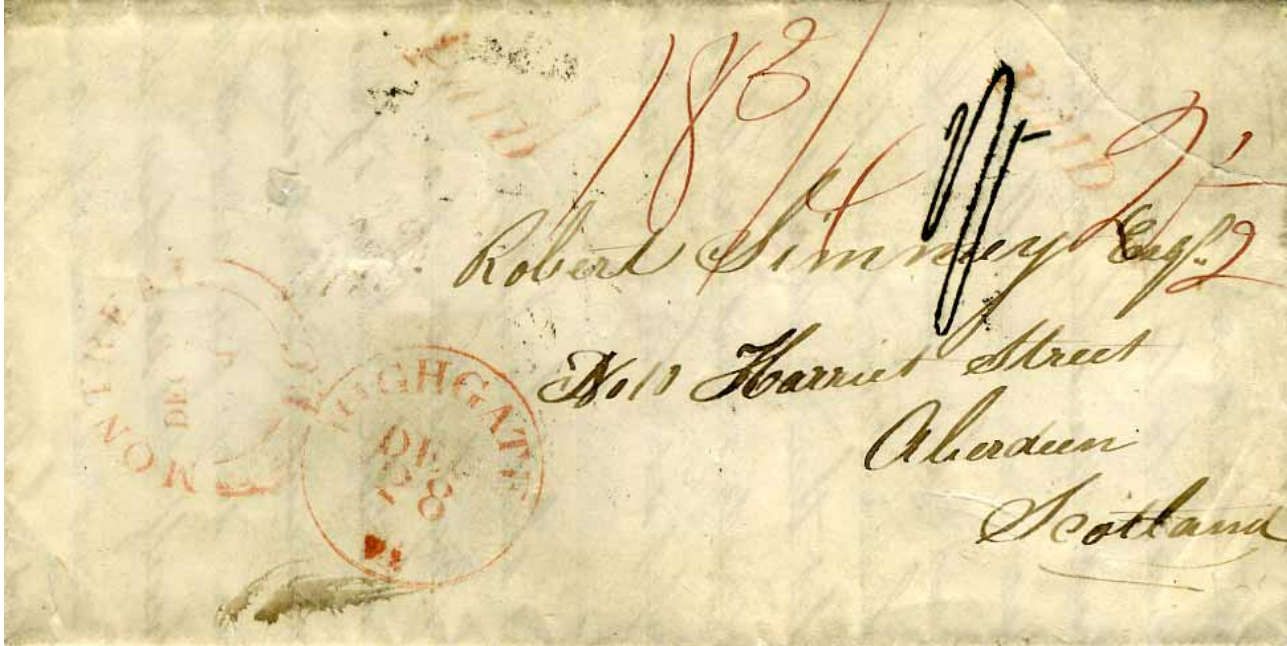 PAID
PAID
18 3/4
25
2
Robert Simmey Esqr.
No 11 Harriet Street
Aberdeen
Scotland
MONTREAL
DE
HIGHGATE
DE
28
Vt